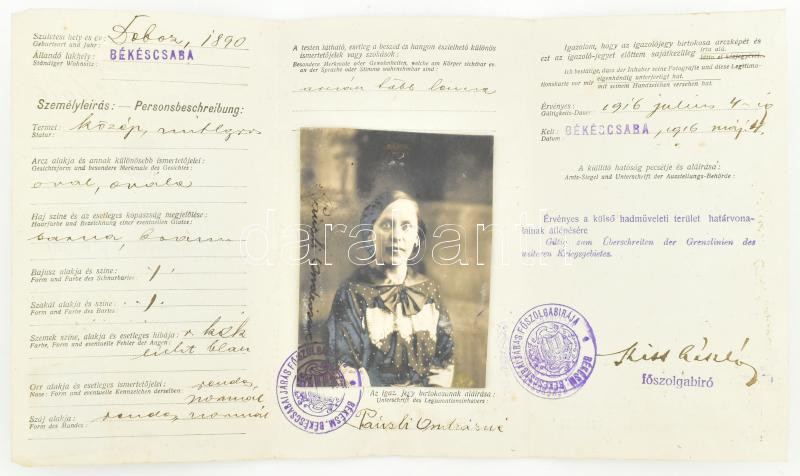 Születési hely és év: Doboz, 1890
Geburtsort und Jahr:
Állandó lakhely: BÉKÉSCSABA
Ständiger Wohnsitz:
Személyleírás: — Personsbeschreibung:
Termet: közép, mittlgross
Statur:
Arcz alakja és annak különösebb ismertetőjelei:
Gesichtsform und besondere Merkmale des Gesichtes:
oval, ovale
Haj színe és az esetleges kopaszság megjelölése:
Haarfarbe und Bezeichnung einer eventuellen Glatze:
barna, braun
Bajusz alakja és színe: ·/.
Form und Farbe des Schnurbartes:
Szakál alakja és színe: ·/.
Form und Farbe des Bartes:
Szemek színe, alakja és esetleges hibája: v. kék
Farbe, Form und eventuelle Fehler der Augen:
licht blau
Orr alakja és esetleges ismertetőjelei: rendes,
Nase: Form und eventuelle Kennzeichen derselben: normal
Száj alakja: rendes, normal
Form des Mundes:
A testen látható, esetleg a beszéd és hangon észlelhető különös
ismertetőjelek vagy szokások:
Besondere Merkmale oder Gewohnheiten, welche am Körper sichtbar ev.
an der Sprache oder Stimme wahrnehmbar sind:
darabanth
BÉKÉSM. BÉKÉSCSABAI JÁRÁS FŐSZOLGABIRÁJA
Az igaz. jegy birtokosának aláírása:
Unterschrift des Legitimationsinhabers:
Igazolom, hogy az igazolójegy birtokosa arczképét és
ezt az igazoló-jegyet előttem sajátkezűleg írta alá.
Ich bestätige, dass der Inhaber seine Fotografie und diese Legitima-
tionskarte vor mir eigenhändig unterfertigt hat.
mit seinem Handzeichen versehen hat.
Érvényes: 1916 július 4-ig
Gültigkeits-Dauer:
Kelt: BÉKÉSCSABA, 1916 máj 4.
Datum:
A kiállító hatóság pecsétje és aláírása:
Amts-Siegel und Unterschrift der Ausstellungs-Behörde:
Érvényes a külső hadműveleti terület határvona-
lainak átlépésére
Gültig zum Überschreiten der Grenzlinien des
weiteren Kriegsgebietes.
BÉKÉSM. BÉKÉSCSABAI JÁRÁS FŐSZOLGABIRÁJA
Kiss László
főszolgabíró